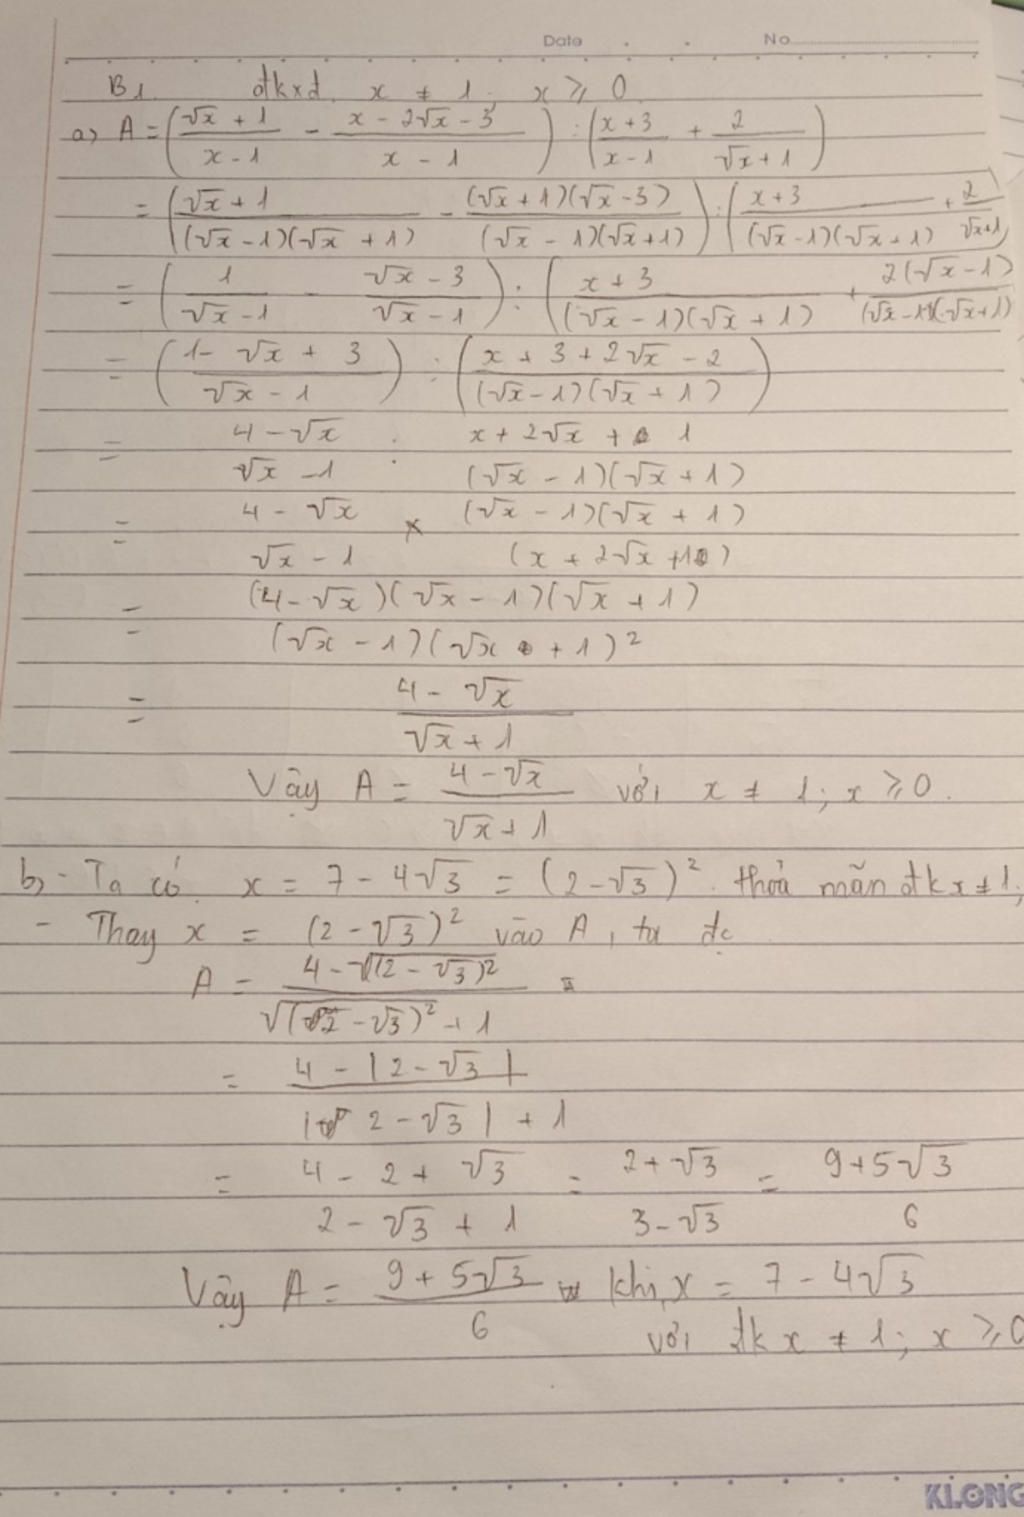 Date . . No
B1. đkxđ x ≠ 1; x ⩾ 0
a, A = ((√x + 1)/(x - 1) - (x - 2√x - 3)/(x - 1)) : ((x + 3)/(x - 1) + 2/(√x + 1))
= ((√x + 1)/((√x - 1)(√x + 1)) - ((√x + 1)(√x - 3))/((√x - 1)(√x + 1))) : ((x + 3)/((√x - 1)(√x + 1)) + 2/(√x + 1))
= (1/(√x - 1) - (√x - 3)/(√x - 1)) : ((x + 3)/((√x - 1)(√x + 1)) + (2(√x - 1))/((√x - 1)(√x + 1)))
= ((1 - √x + 3)/(√x - 1)) : ((x + 3 + 2√x - 2)/((√x - 1)(√x + 1)))
= (4 - √x)/(√x - 1) : (x + 2√x + 1)/((√x - 1)(√x + 1))
= (4 - √x)/(√x - 1) × ((√x - 1)(√x + 1))/((x + 2√x + 1))
= ((4 - √x)(√x - 1)(√x + 1))/((√x - 1)(√x + 1)²)
= (4 - √x)/(√x + 1)
Vậy A = (4 - √x)/(√x + 1) với x ≠ 1; x ⩾ 0.
b, - Ta có x = 7 - 4√3 = (2 - √3)². thoả mãn đk x ≠ 1;
- Thay x = (2 - √3)² vào A, ta đc
A = (4 - √((2 - √3)²))/(√((2 - √3)²) + 1) =
= (4 - |2 - √3|)/(|2 - √3| + 1)
= (4 - 2 + √3)/(2 - √3 + 1) = (2 + √3)/(3 - √3) = (9 + 5√3)/6
Vậy A = (9 + 5√3)/6 khi x = 7 - 4√3
với đk x ≠ 1; x ⩾ 0
KLONG